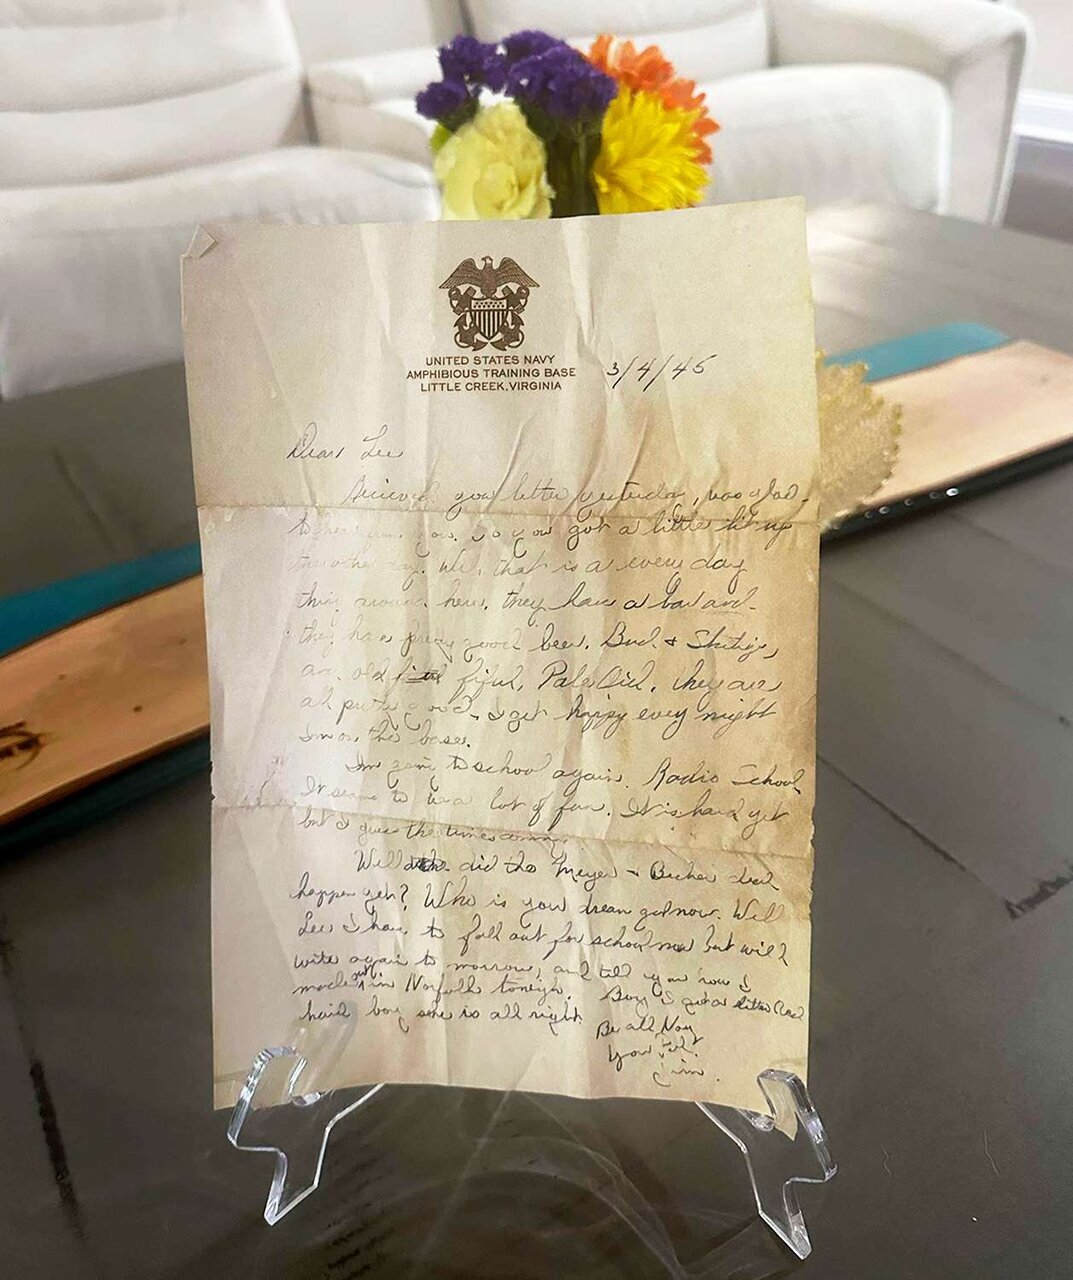 UNITED STATES NAVY
AMPHIBIOUS TRAINING BASE
LITTLE CREEK, VIRGINIA
3/4/45
Dear Lee
Recieved your letter yesterday, was glad
to hear from you. So you got a little lit up
the other day. Well, that is a every day
thing around here. they have a bar and
they have pretty good beer. Bud &
old Pabst they are
all pretty good. I get happy every night
Im on the base.
Im going to school again. Radio School
It seems to be a lot of fun. It is hard yet
but I guess the times coming.
Well did the Meyer & Becker deal
happen yet? Who is your dream girl now. Well
Lee I have to fall out for school now but will
write again to morrow, and tell you how I
made out in Norfolk tonigh. Boy I got a little Red
haid boy she is all right
Be all Navy
Your Pal.
Jim.